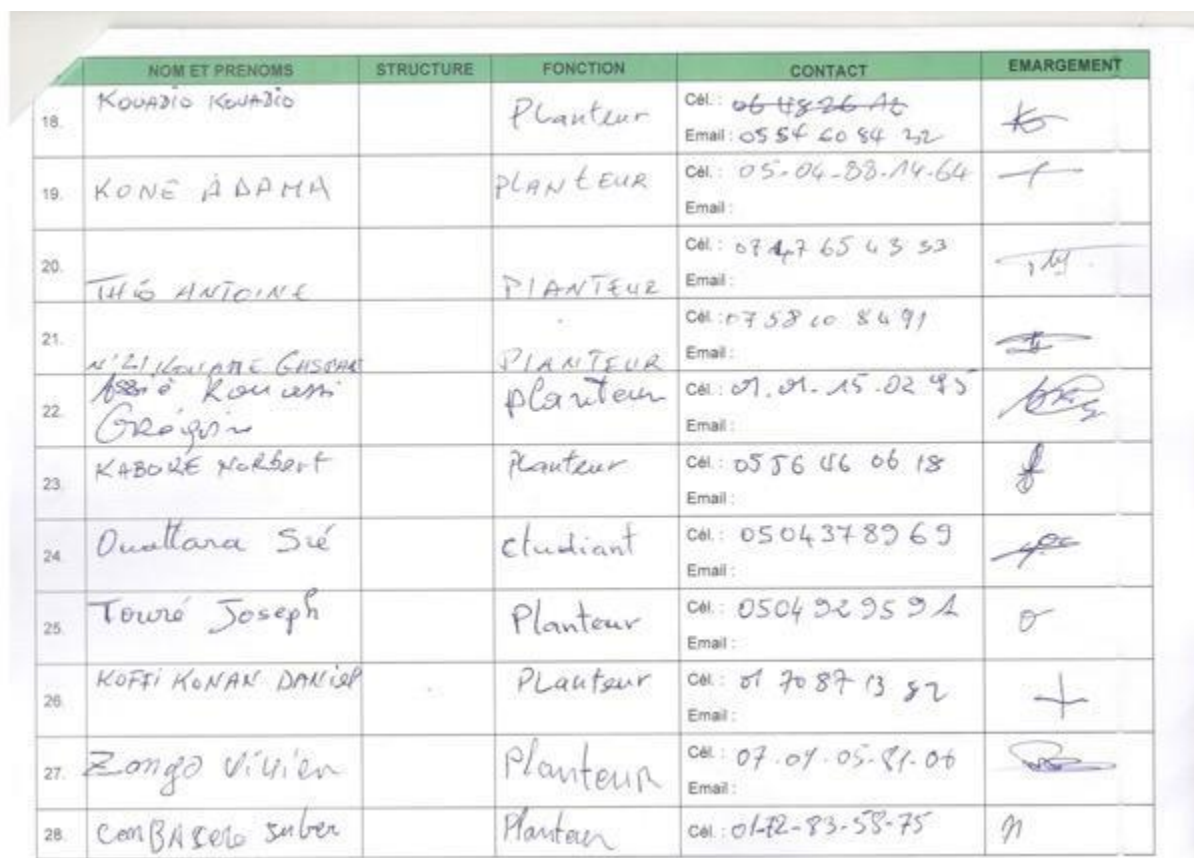 NOM ET PRENOMS STRUCTURE FONCTION CONTACT EMARGEMENT
18. KOUADIO KOUADIO Planteur Cél. : 06 48 26
Email : 05 54 60 84 22
19. KONE ADAMA PLANTEUR Cél. : 05-04-88-14-64
Email :
20. THÉO ANTOINE PLANTEUR Cél. : 07 47 65 43 53
Email :
21. N'ZI KOUAME PLANTEUR Cél. : 07 58 10 84 91
Email :
22. Assié Kouassi Grégoire planteur Cél. : 01.01.15.02 95
Email :
23. KABORE Norbert Planteur Cél. : 05 56 46 06 18
Email :
24. Ouattara Sié etudiant Cél. : 0504378969
Email :
25. Touré Joseph Planteur Cél. : 0504929591
Email :
26. KOFFI KONAN DANIEL Planteur Cél. : 01 70 87 13 82
Email :
27. Zongo Vivien Planteur Cél. : 07.09.05.81.06
Email :
28. Planteur Cél. : 01-72-83-58-75